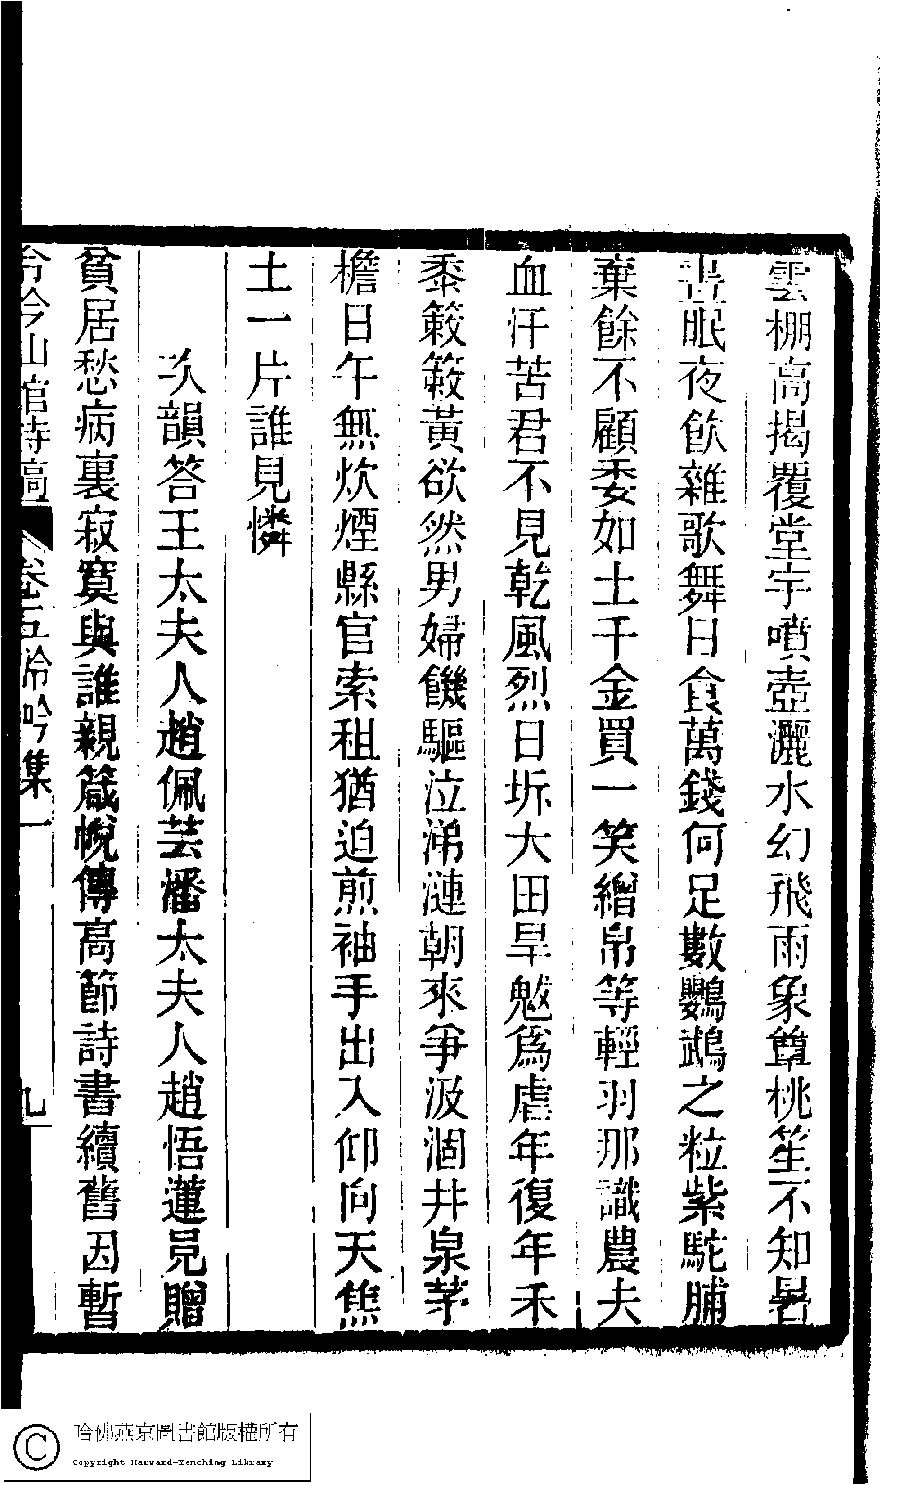 雲棚高揭覆堂宇噴壺灑水幻飛雨象簟桃笙不知暑
晝眠夜飲雜歌舞日食萬錢何足數鸚鵡之粒紫駝脯
棄餘不顧委如土千金買一笑繒帛等輕羽那識農夫
血汗苦君不見乾風烈日坼大田旱魃爲虐年復年禾
黍簌簌黃欲然男婦饑驅泣涕漣朝來爭汲涸井泉茅
檐日午無炊煙縣官索租猶迫煎袖手出入仰向天焦
土一片誰見憐
次韻答王太夫人趙佩芸潘太夫人趙悟蓮見贈
貧居愁病裏寂寞與誰親箴帨傳高節詩書續舊因暫
冷吟山館詩稿 卷五冷吟集一 九
哈佛燕京圖書館版權所有
Copyright Harvard-Yenching Library